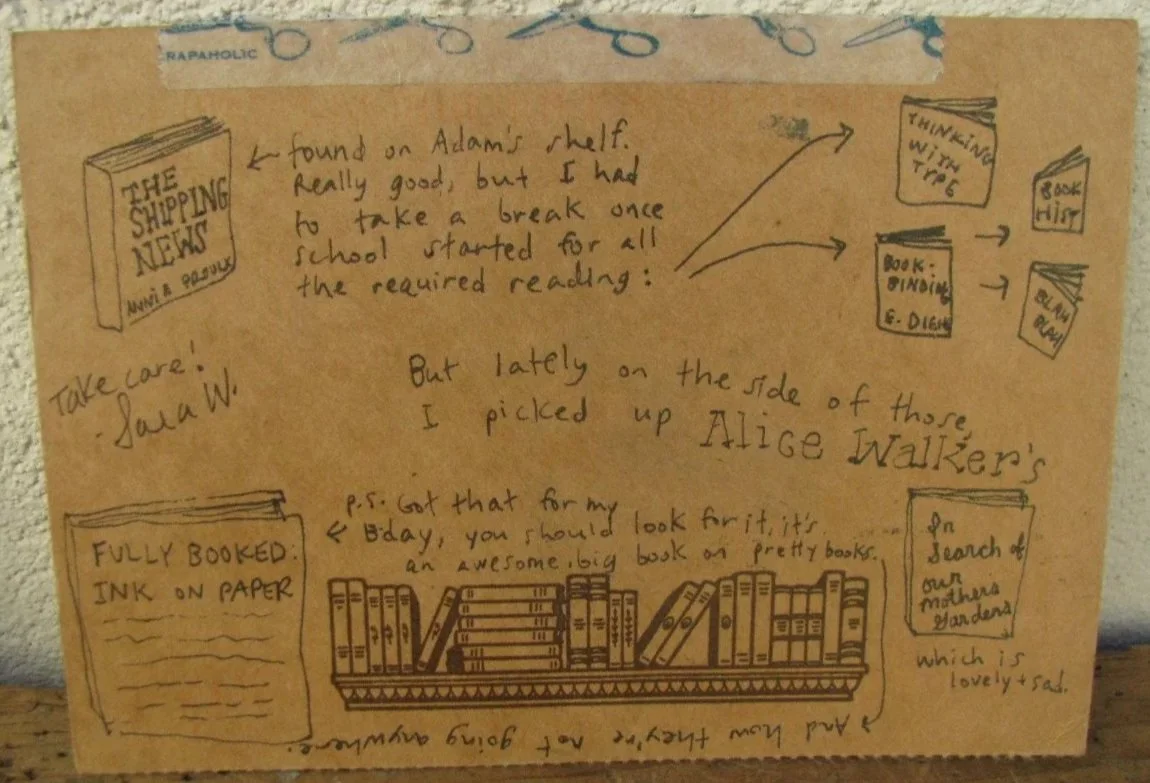 RAPAHOLIC
THE
SHIPPING
NEWS
ANNIE PROULX
← found on Adam's shelf.
Really good, but I had
to take a break once
school started for all
the required reading:
THINKING
WITH
TYPE
BOOK
HIST
BOOK-
BINDING
E. DIEH
BLAH
BLAH
But lately on the side of those,
I picked up Alice Walker's
In
Search of
our
Mothers
Gardens
which is
lovely + sad.
Take care!
- Sara W.
FULLY BOOKED:
INK ON PAPER
p.s. Got that for my
← Bday, you should look for it, it's
an awesome big book on pretty books.
And how they're not going anywhere.